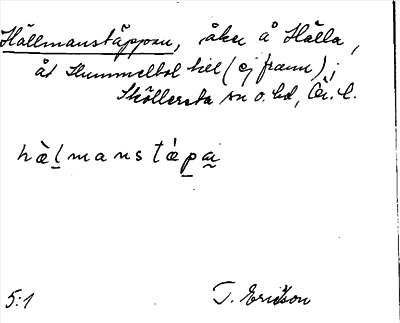 Hällmanståppan, åker å Hälla,
åt Hummelbol till (ej fram);
Sköllersta sn o. hd, Ör. l.
hàlmanstápa
5:1 T. Ericsson